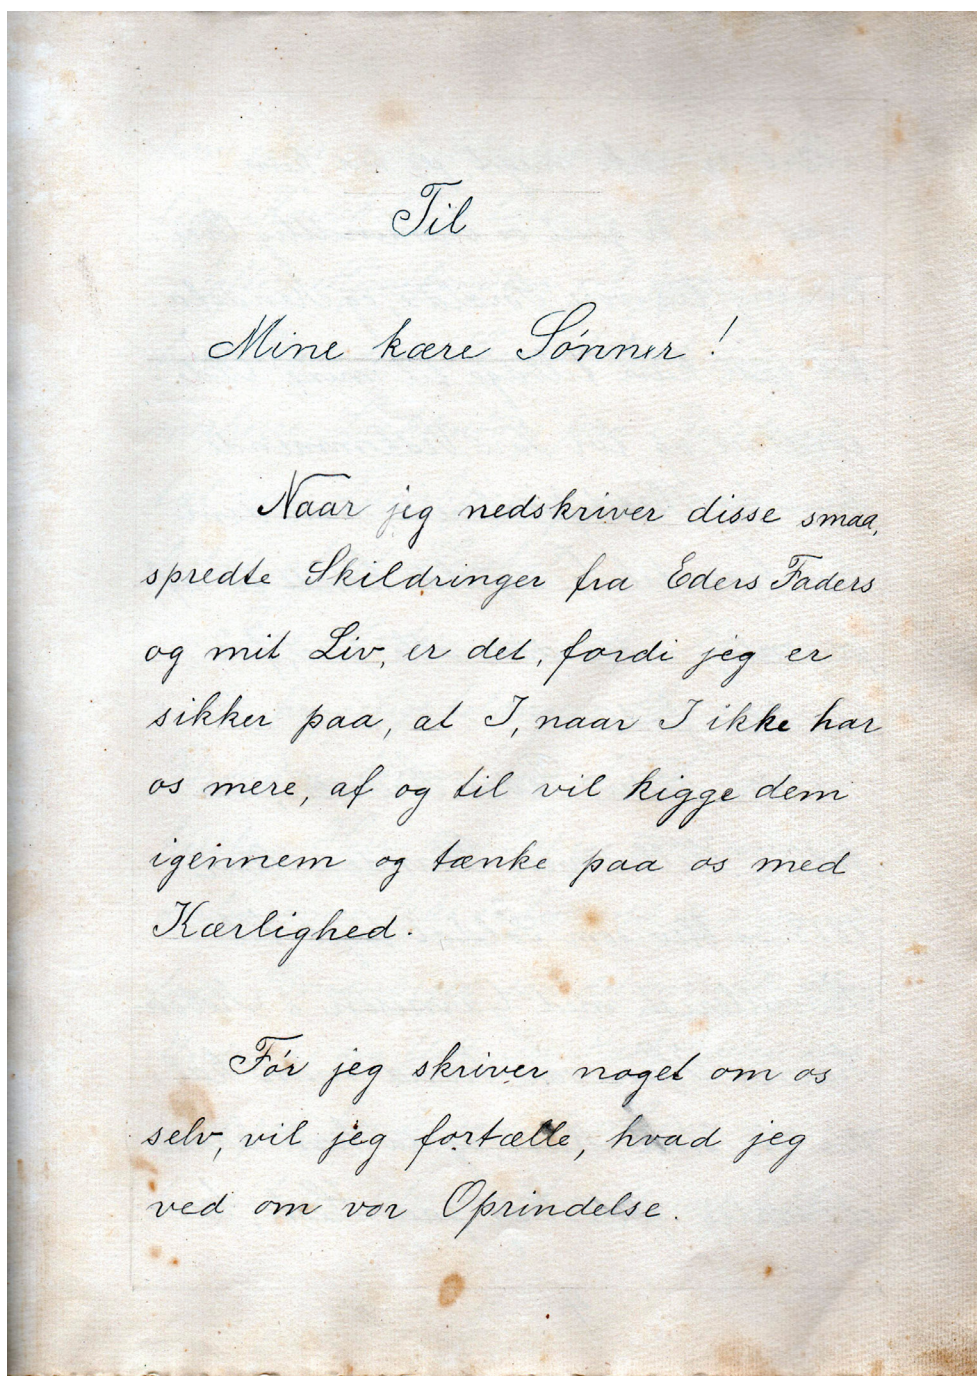 Til
Mine kære Sønner!
Naar jeg nedskriver disse smaa,
spredte Skildringer fra Eders Faders
og mit Liv, er det, fordi jeg er
sikker paa, at I, naar I ikke har
os mere, af og til vil kigge dem
igennem og tænke paa os med
Kærlighed.
Før jeg skriver noget om os
selv, vil jeg fortælle, hvad jeg
ved om vor Oprindelse.